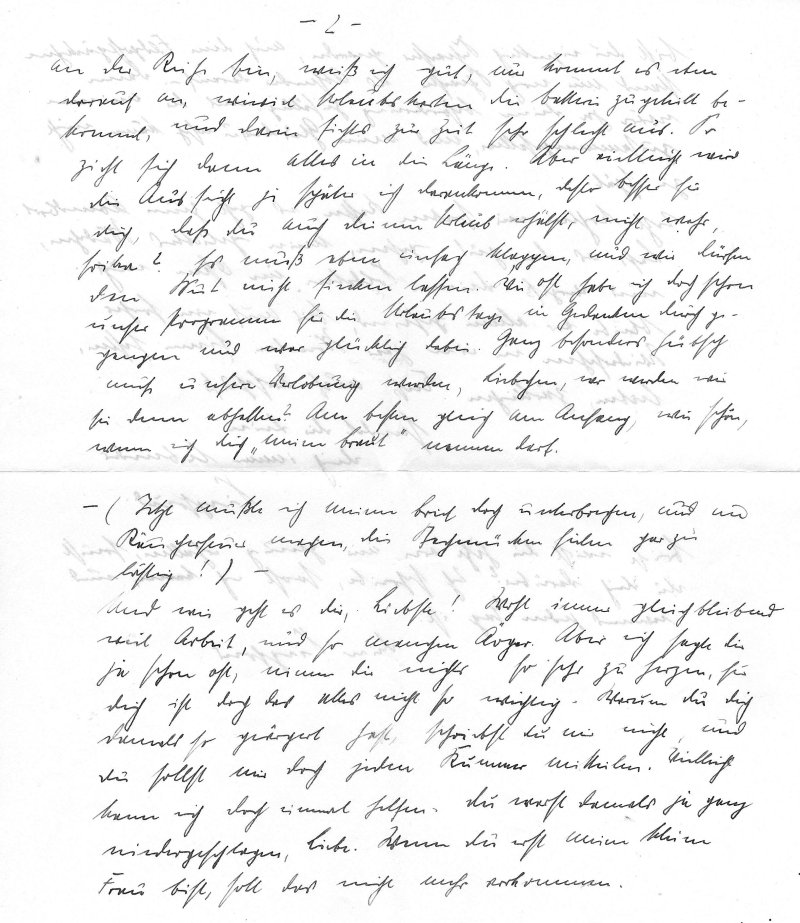 - 2 -
an der Reihe bin, weiß ich gut, nur kommt es eben
darauf an, wieviel Urlaubskarten die Batterie zugeteilt be-
kommt, und darin siehts zur Zeit sehr schlecht aus. So
zieht sich dann alles in die Länge. Aber vielleicht wird
die Aussicht je später ich darankomme, desto besser für
dich, daß du auch deinen Urlaub erhälst, nicht wahr,
? Es muß eben einfach klappen, und wir dürfen
den Mut nicht sinken lassen. Wie oft habe ich doch schon
unser Programm für die Urlaubstage in Gedanken durchge-
gangen und war glücklich dabei. Ganz besonders hübsch
muß unsere Verlobung werden, Liebchen, wo werden wir
sie denn abhalten? Am besten gleich am Anfang, wie schön,
wenn ich dich „meine Braut" nennen darf.
- (Jetzt mußte ich meinen Brief doch unterbrechen, und un
Räucherfeuer machen, die Stechmücken fielen gar zu
lästig!) -
Und wie geht es dir, Liebste! Wohl immer gleichbleibend
viel Arbeit, und so manchen Ärger. Aber ich sagte dir
ja schon oft, nimm dir nichts so sehr zu Herzen, für
dich ist doch das alles nicht so wichtig. Warum du dich
damals so geärgert hast, schriebst du mir nicht, und
du sollst mir doch jeden Kummer mitteilen. Vielleicht
kann ich doch einmal helfen. Du warst damals ja ganz
niedergeschlagen, Liebe. Wenn du erst meine kleine
Frau bist, soll das nicht mehr vorkommen.